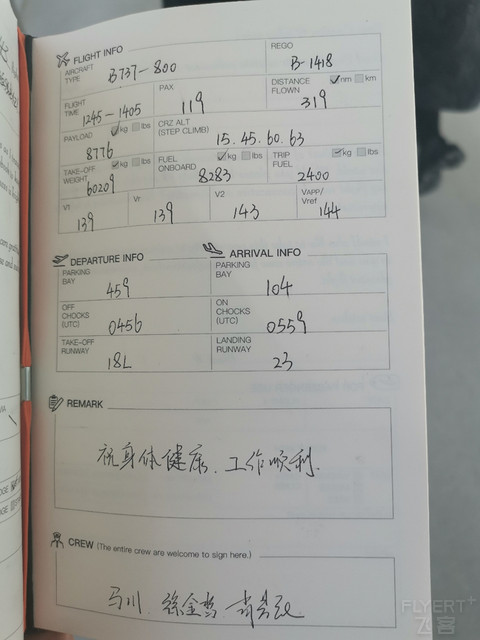 FLIGHT INFO
AIRCRAFT TYPE B737-800
REGO B-1418
FLIGHT TIME 1245-1405
PAX 119
DISTANCE FLOWN nm km 319
PAYLOAD kg lbs 8776
CRZ ALT (STEP CLIMB) 15.45.60.63
TAKE-OFF WEIGHT kg lbs 60209
FUEL ONBOARD kg lbs 8283
TRIP FUEL kg lbs 2400
V1 139
Vr 139
V2 143
VAPP/Vref 144
DEPARTURE INFO
ARRIVAL INFO
PARKING BAY 459
PARKING BAY 104
OFF CHOCKS (UTC) 0456
ON CHOCKS (UTC) 0559
TAKE-OFF RUNWAY 18L
LANDING RUNWAY 23
REMARK
祝身体健康、工作顺利.
CREW (The entire crew are welcome to sign here.)
马川.
FLYERT+
飞客